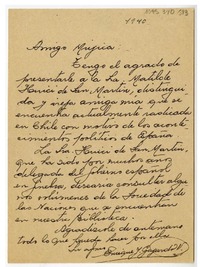 1940
Amigo Mujica:
Tengo el agrado de
presentarle a la Sra. Matilde
Huici de San Martín, distingui-
da y vieja amiga mía que se
encuentra actualmente radicada
en Chile con motivo de los acon-
tecimientos políticos de España
La Sra Huici de San Martín,
que ha sido por muchos años
delegada del gobierno español
en Ginebra, desearía consultar algu-
nos volúmenes de la Sociedad de
las Naciones que se encuentran
en nuestra Biblioteca.
Agradézcole de antemano
todo lo que pueda hacer por ella.
Su amigo